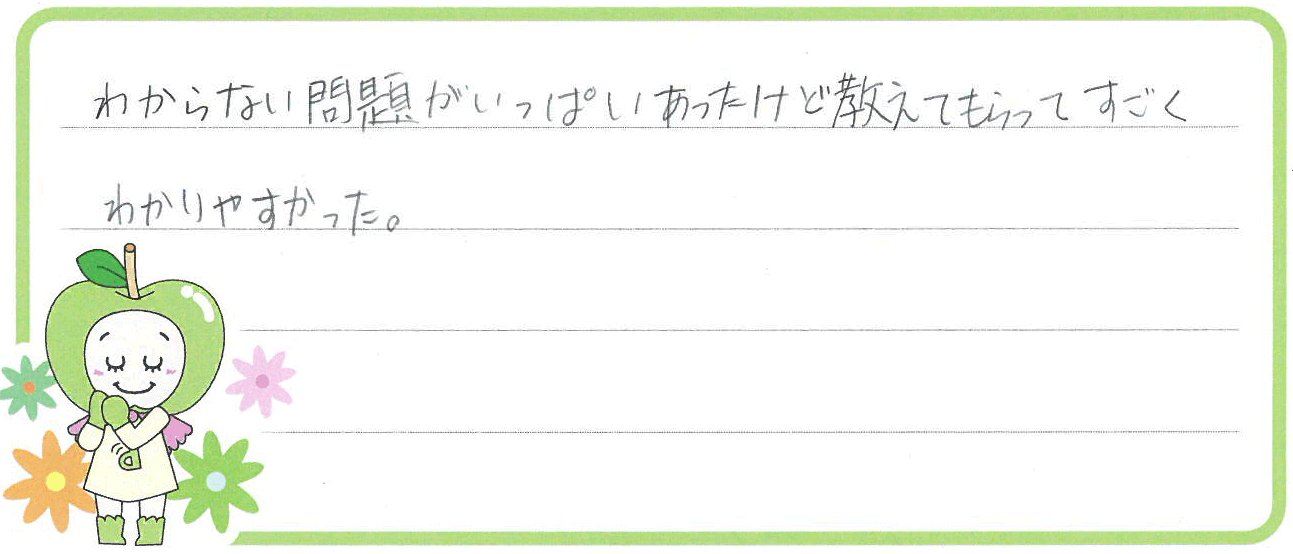 わからない問題がいっぱいあったけど教えてもらってすごく
わかりやすかった。